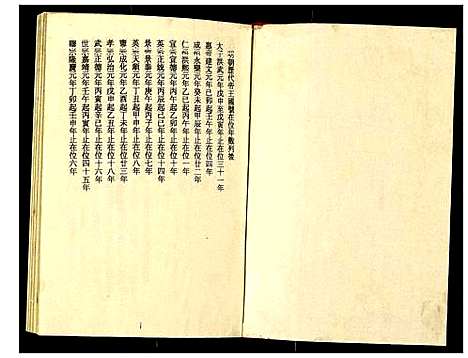 明朝歷代帝王國號在位年數列後
太宗洪武元年戊申至戊寅年止在位三十一年
惠宗建文元年己卯起壬午年止在位四年
成祖永樂元年癸未起甲辰年止在位廿二年
仁宗洪熙元年乙巳起丙午年止在位一年
宣宗宣德元年丙午起乙卯年止在位十年
英宗正統元年丙辰起己巳年止在位十四年
景宗景泰元年庚午起丙子年止在位七年
英宗天順元年丁丑起甲申年止在位八年
憲宗成化元年乙酉起丁未年止在位廿三年
孝宗弘治元年戊申起乙丑年止在位十八年
武宗正德元年丙寅起辛巳年止在位十六年
世宗嘉靖元年壬午起丙寅年止在位四十五年
穆宗隆慶元年丁卯起壬申年止在位六年